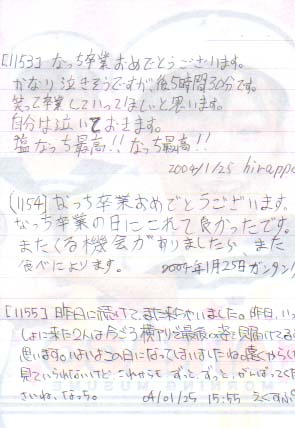 [1153] なっち卒業おめでとうございます。
かなり泣きそうですが、後5時間30分です。
笑って卒業していってほしいと思います。
自分は泣いておきます。
塩なっち最高!! なっち最高!!
2004/1/25 hirappa
[1154] なっち卒業おめでとうございます。
なっち卒業の日にこれて良かったです。
またくる機会がありましたら、また
食べによります。 2004年1月25日 ガンタン
[1155] 昨日に続けてまた来ちゃいました。昨日、いっ
しょに来た2人は今ごろ横アリで最後の姿を見届けてると
思います。いよいよこの日になってしまいましたね。遠くからしか
見ていられないけど、これからも ずっと、ずっと、がんばってくだ
さいね、なっち。 04/01/25 15:55 えくすぷ
MORNING MUSUME